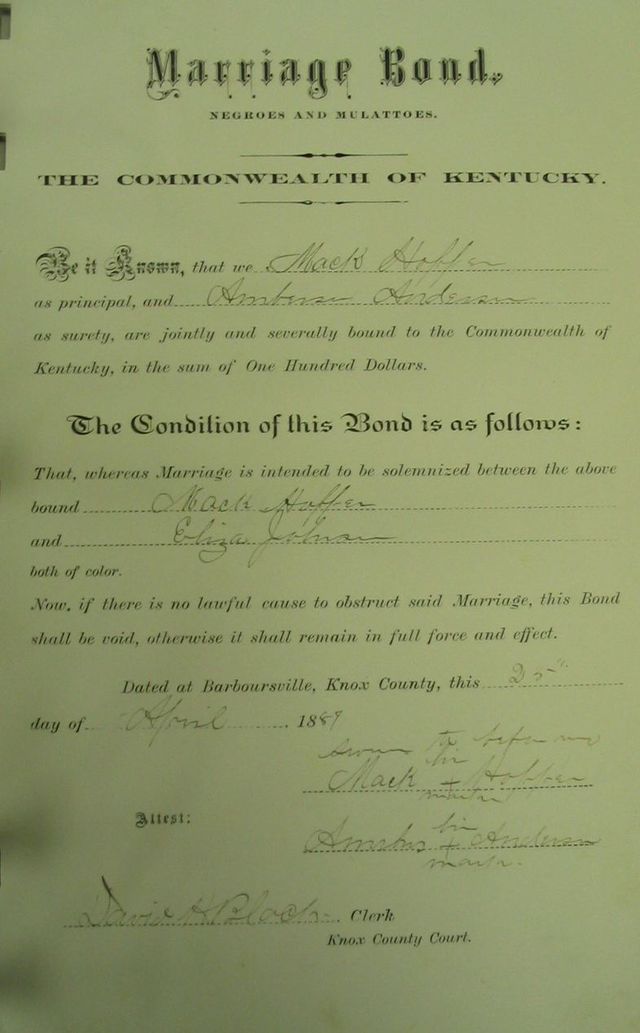 Marriage Bond.
NEGROES AND MULATTOES.
THE COMMONWEALTH OF KENTUCKY.
Be it Known, that we Mack Hopper
as principal, and Anderson
as surety, are jointly and severally bound to the Commonwealth of
Kentucky, in the sum of One Hundred Dollars.
The Condition of this Bond is as follows:
That, whereas Marriage is intended to be solemnized between the above
bound Mack Hopper
and Eliza Johnson
both of color.
Now, if there is no lawful cause to obstruct said Marriage, this Bond
shall be void, otherwise it shall remain in full force and effect.
Dated at Barboursville, Knox County, this 25"
day of April 1889
Sworn to before me
his
Mack + Hopper
mark
Attest:
his
+ Anderson
mark.
David H. Black Clerk
Knox County Court.